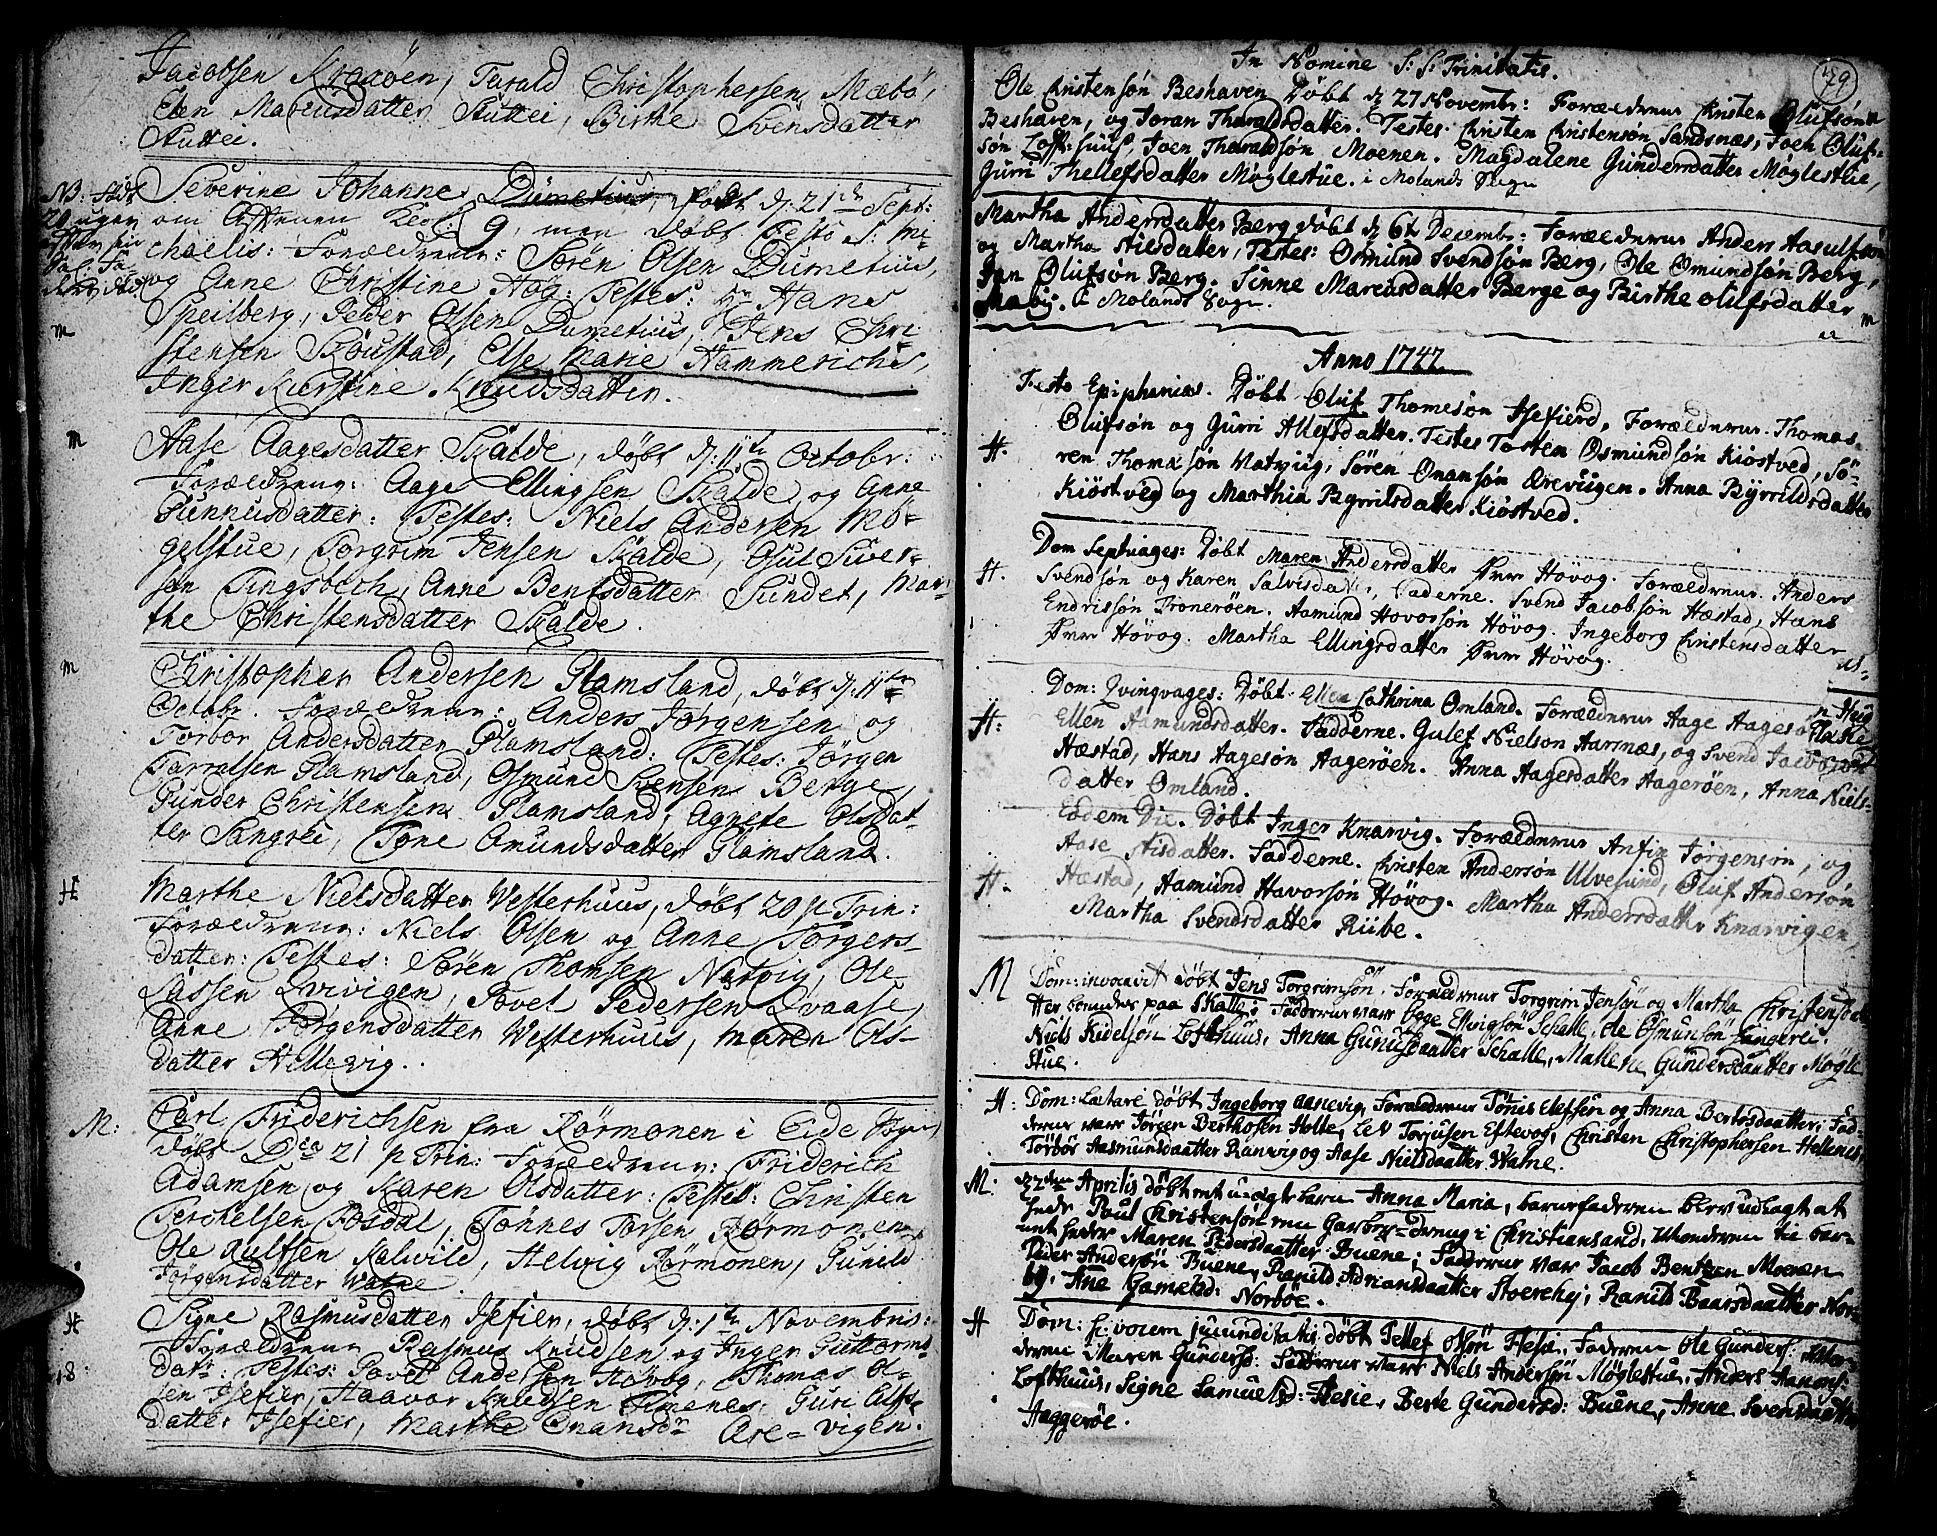 Jacobsen Kraxöen, Tarald Christophersen Mæbö,
Elen Marcusdatter Stuttei, Birthe Svensdatter
Stuttei.
NB: född
20 uger
efter sin
Sal: Fa-
ders död
Severine Johanne Dumetius, född d: 21de Sept:
om Aftenen Kl: 9, men döbt Festo S: Mi-
chaelis: Forældrene: Sören Olsen Dumetius,
og Anne Christine Hog: Testes: Hr Hans
Speilberg, Peder Olsen Dumetius, Jens Chri-
stensen Skoustad, Else Marie Hammerichs,
Inger Kierstine Knudsdatter.
M
M
Aase Aagesdatter Skalde, döbt d: 11te Octobr:
Forældrene: Aage Ellingsen Skalde og Anne
Gunnusdatter: Testes: Niels Andersen Mö-
gelstue, Torgrim Jensen Skalde, Osul Siver-
sen Tingsbech, Anne Bentsdatter Sundet, Mar-
the Christensdatter Skalde.
M
Christopher Andersen Glamsland, döbt d: 11te
Octobr. Forældrene: Anders Jörgensen og
Torbor Andersdatter Glamsland: Testes: Jörgen
Tarralsen Glamsland, Osmund Svensen Berge,
Gunder Christensen Glamsland, Agnete Olsdat-
ter Sangrei, Tone Omundsdatter Glamsland.
H
Marthe Nielsdatter Westerhuus, döbt 20 p Trin:
Forældrene: Niels Olsen og Anne Jörgens-
datter: Testes: Sören Thomsen Natvig, Ole
Lassen Qvivigen, Povel Pedersen Qvaase,
Anne Jörgensdatter Westerhuus, Maren Ols-
datter Hellevig.
M:
Carl Friderichsen fra Rörmonen i Eide Sogn,
döbt Dca 21 p Trin: Forældrene: Friderich
Adamsen og Karen Olsdatter: Testes: Christen
Terchelsen Fosdal, Tönnes Torsen Rörmonen,
Ole Aulfsen Kalvild, Helvig Rörmonen, Gunild
Jörgensdatter Watne.
H
18:
Signe Rasmusdatter Isefier, döbt d: 1te Novembris:
Forældrene Rasmus Knudsen og Inger Guttorms-
datr: Testes: Povel Andersen Hövog, Thomas Ol-
sen Isefier, Haavor Knudsen Omenes, Guri Alfs-
datter Isefier, Marthe Enansdr Ore-vigen.
79
In Nomine S: S: Trinitatis.
Ole Christensön Beshaven Döbt d 27 Novembr: Forældrene Christen Olufsön
Beshaven, og Joran Tharaldsdatter. Testes. Christen Christensön Sandnæs, Joen Oluf-
sön Loft-huus, Joen Tharaldsön Moenen. Magdalene Gundersdatter Moglestue,
Gurri Thellefsdatter Moglestue. i Molands Sogn
Martha Andersdatter Berg döbt d 6te Decembr: Forældrene Anders Aasulfsön
og Martha Nilsdatter, Testes: Osmund Svendsön Berg, Ole Omundsön Berg,
Jan Olufsön Berg. Sinne Marcusdatter Berge og Birthe Olufsdatter
i Molands Sogn.
M
Anno 1747.
H.
Festo Epiphanias. Döbt Oluf Thomesön Isefierd, Forældrene. Thomas
Olufsön og Gurri Allefsdatter. Testes Tosten Osmundsön Kiöstved, Sö-
ren Thomæsön Natviig, Sören Onansön Örevigen. Anna Byrrildsdatter
Kiöstved og Marthia Byrrilsdatter Kiöstved.
H.
Dom Septuages: Döbt Maren Andersdatter Hövog. Forældrene. Anders
Svendsön og Karen Salvisdatter, Fadderne. Svend Jacobsön Hæstad, Hans
Endrissön Troneröen. Aamund Hovorsön Höyog. Ingeborg Christensdatter
Hövog. Martha Ellingsdatter Hövog.
H.
Dom: Qvinqvages: Döbt Ellen Cathrina Omland. Forældrene Aage Aagesön
Ellen Aamundsdatter. Fadderne. Gulef Nielson Aarnæs, og Svend Jacobsön
Hæstad, Hans Aagesön Aageröen. Anna Aagesdatter Aageröen, Anna Niels-
datter Omland.
H.
Eodem Die. Döbt Inger Knarvig. Forældrene Anfin Jörgensön, og
Aase Nilsdatter. Fadderne. Christen Andersön Ulvesund, Oluf Andersön
Hæstad, Aamund Havorsön Hövog. Martha Andersdatter Knarvigen,
Martha Svendsdatter Riibe.
M
Dom: invocavit döbt Jens Torgrimsön. Forældrene Torgrim Jensön og Martha Christensdatter
paa Skalle: Fadderne vare Ogge Ellingsön Schalle, Ole Osmunsön Langerei.
Niels Kidelsön Lofthuus, Anna Gunusdaatter Schalle, Mallene Gundersdaatter Mögle
stue.
H:
Dom: Lætare döbt Ingeborg Aanevig, Forældrene Tönes Elefsen og Anna Bertosdaatter, Fad-
derne vare Jörgen Berthosen Holte, Lev Torjusen Eftevog, Christen Christophersen Hellenes,
Torbör Aasmunsdaatter Ranvig og Aase Nielsdaatter Watne.
M:
Aprilis döbt et uægt barn Anna Maria, barnefaderen blev udlagt at
hede Poul Christensön en Garber-dreng i Christiansand, Moderen til bar-
net heder Maren Pedersdaatter Buene; Fadderne vare Jacob Bentzen Moeren
Peder Andersön Buene, Ranild Adriansdaatter Stoerehej, Ranild Baarsdaatter Nor-
bö. Ane Gamelsd: Norböe.
H
Dom: jucunditatis döbt Tellef Olsön Hesie, Faderen Ole Gunders: Mo-
deren Maren Gundersd: Fadderne vare Niels Andersön Möglestue, Anders Aanons:
Lofthuus, Signe Samuelsd: Hesie, Berte Gundersd: Buene, Anne Svensdaatter
Haggeröe.